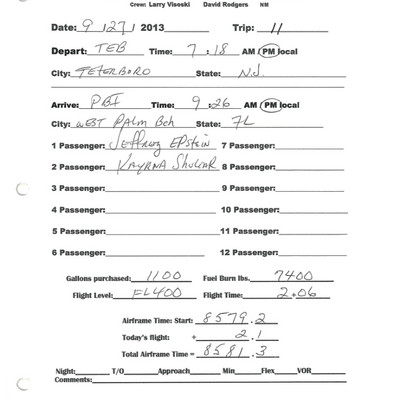 Crew: Larry Visoski David Rodgers NM
Date: 9 /27/ 2013 Trip: 11
Depart: TEB Time: 7 : 18 AM PM local
City: TETERBORO State: N.J.
Arrive: PBI Time: 9 :26 AM PM local
City: WEST PALM Bch State: FL
1 Passenger: Jeffrey EPStein 7 Passenger:
2 Passenger: 8 Passenger:
3 Passenger: 9 Passenger:
4 Passenger: 10 Passenger:
5 Passenger: 11 Passenger:
6 Passenger: 12 Passenger:
Gallons purchased: 1100 Fuel Burn lbs. 7400
Flight Level: FL400 Flight Time: 2+06
Airframe Time: Start: 8579.2
Today's flight: + 2.1
Total Airframe Time = 8581.3
Night: T/O Approach Min Flex VOR
Comments: